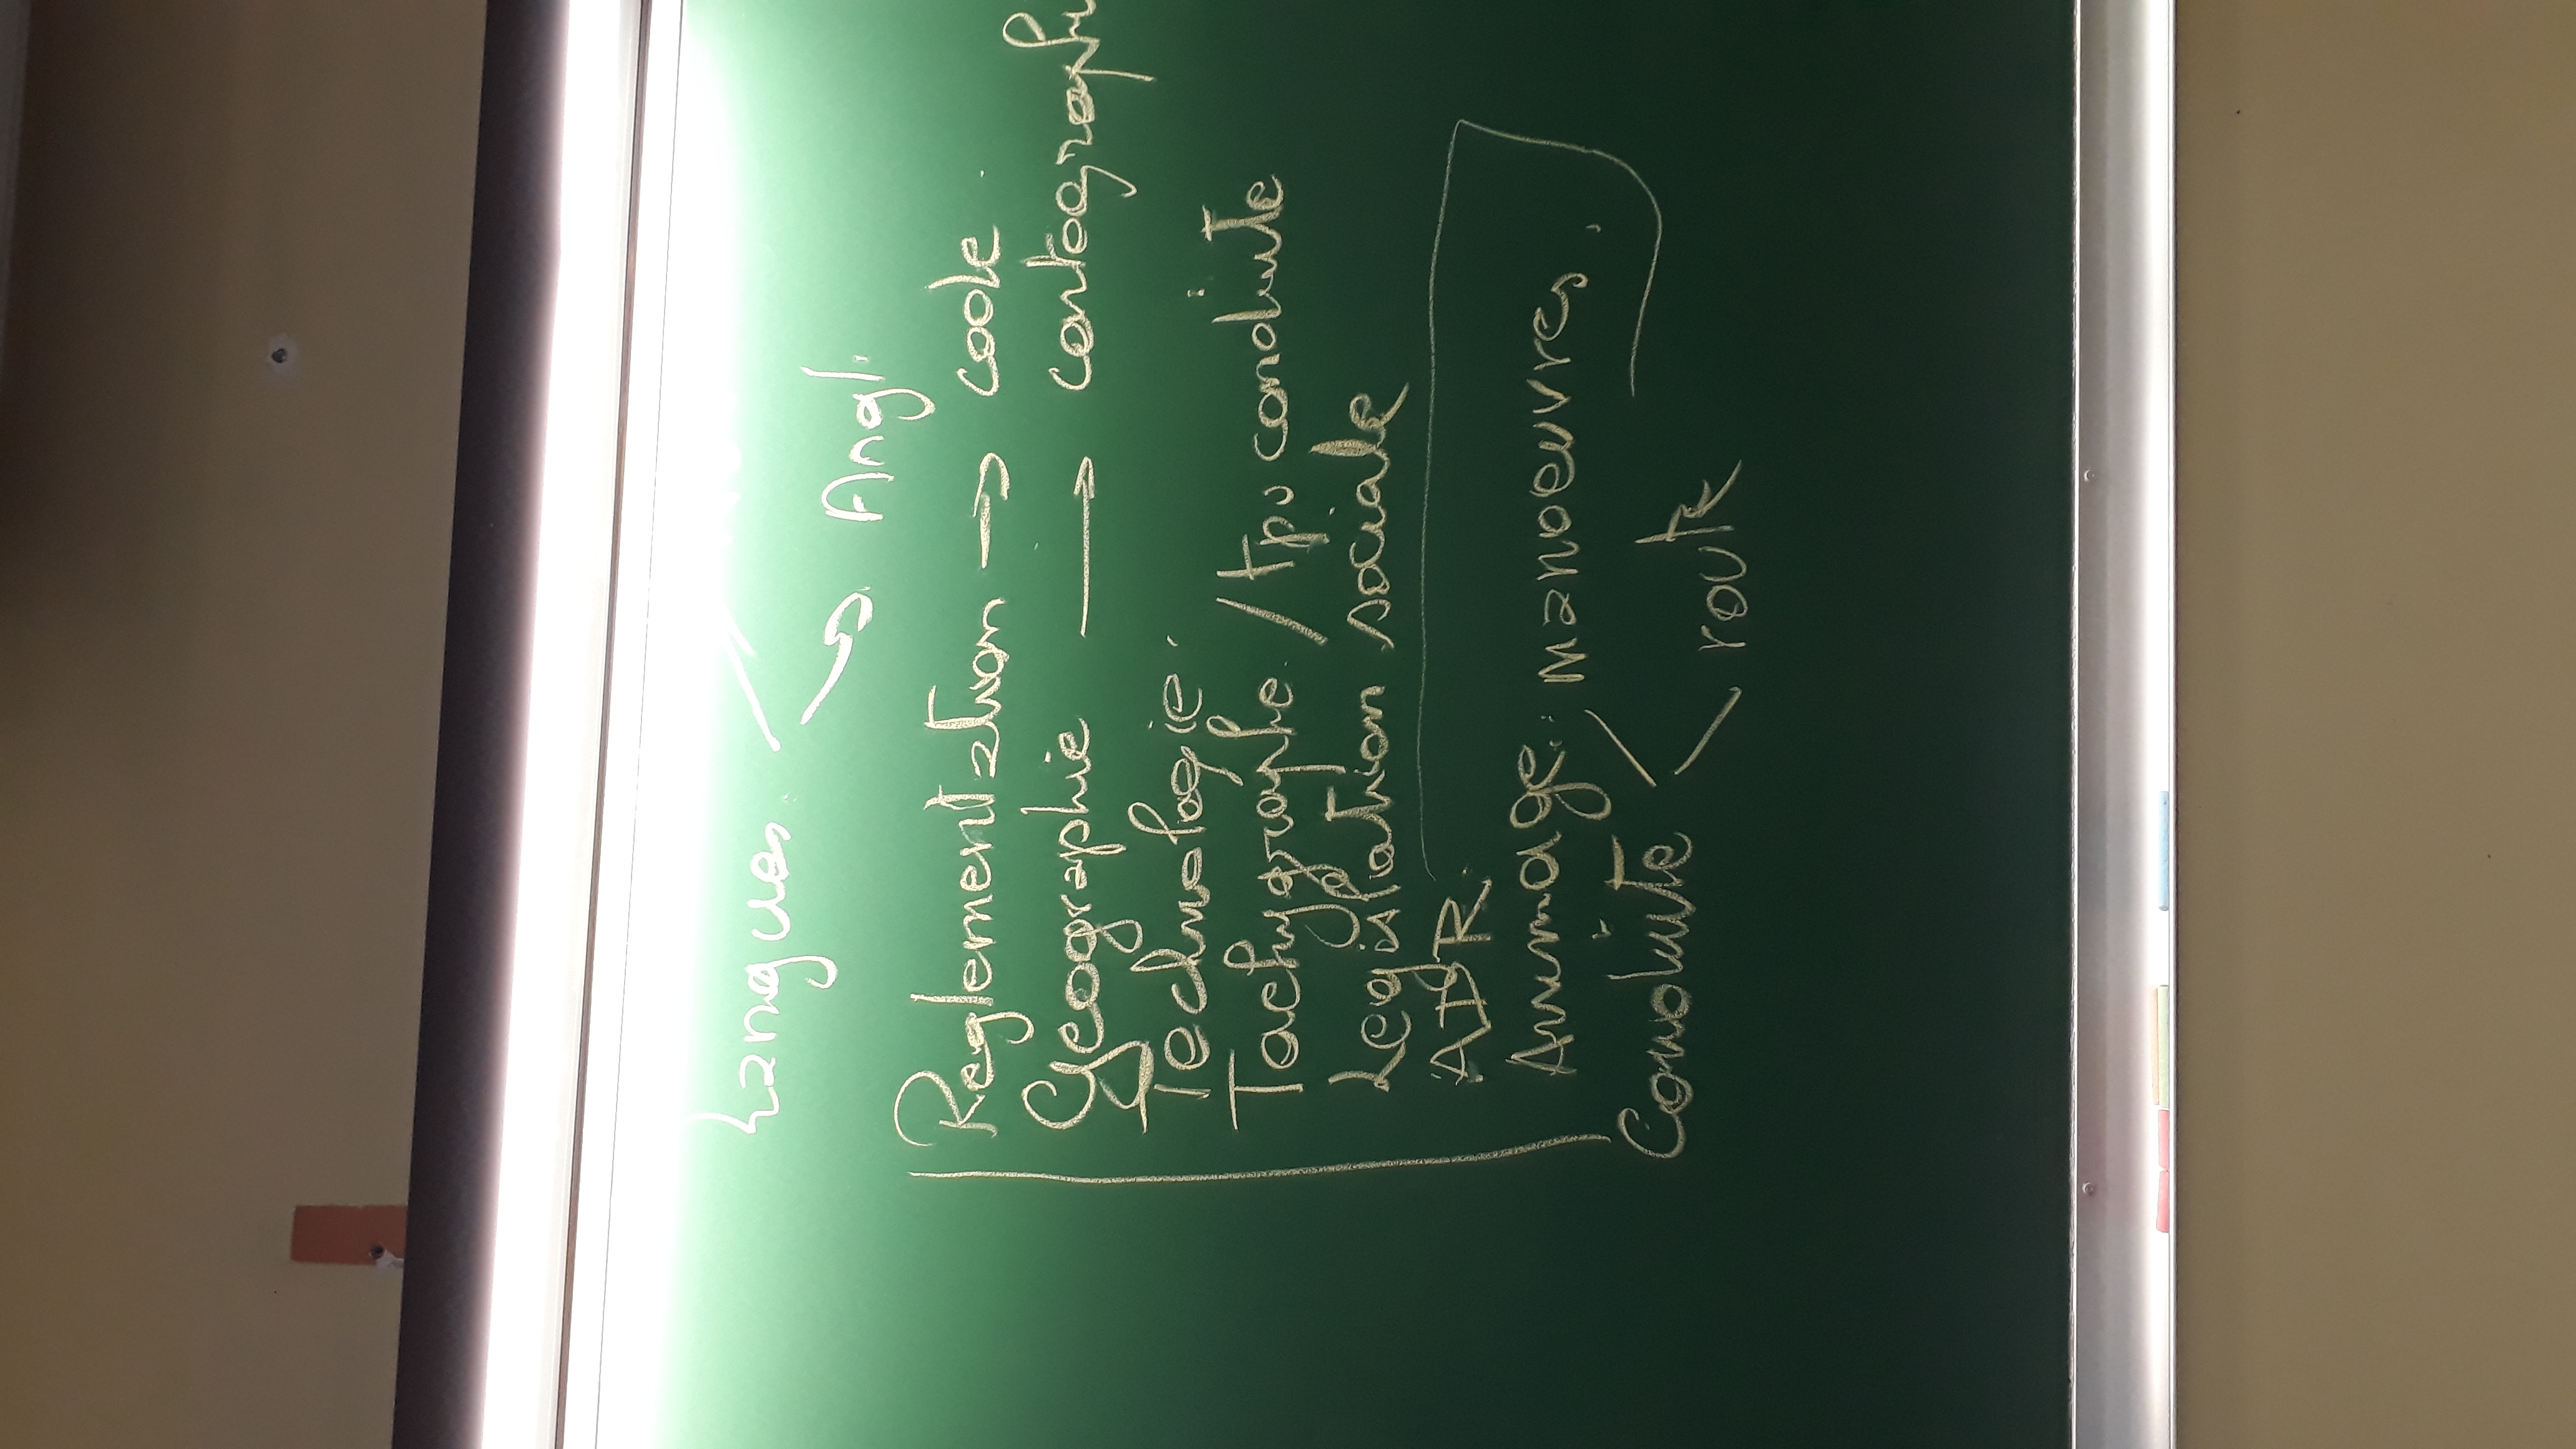 Langues
→ Angl.
Reglementation → code.
Geographie → cartographi
Technologie.
Tachygraphe / tps conduite
Legislation sociale
ADR
Arrimage.
Conduite < manoeuvres.
route